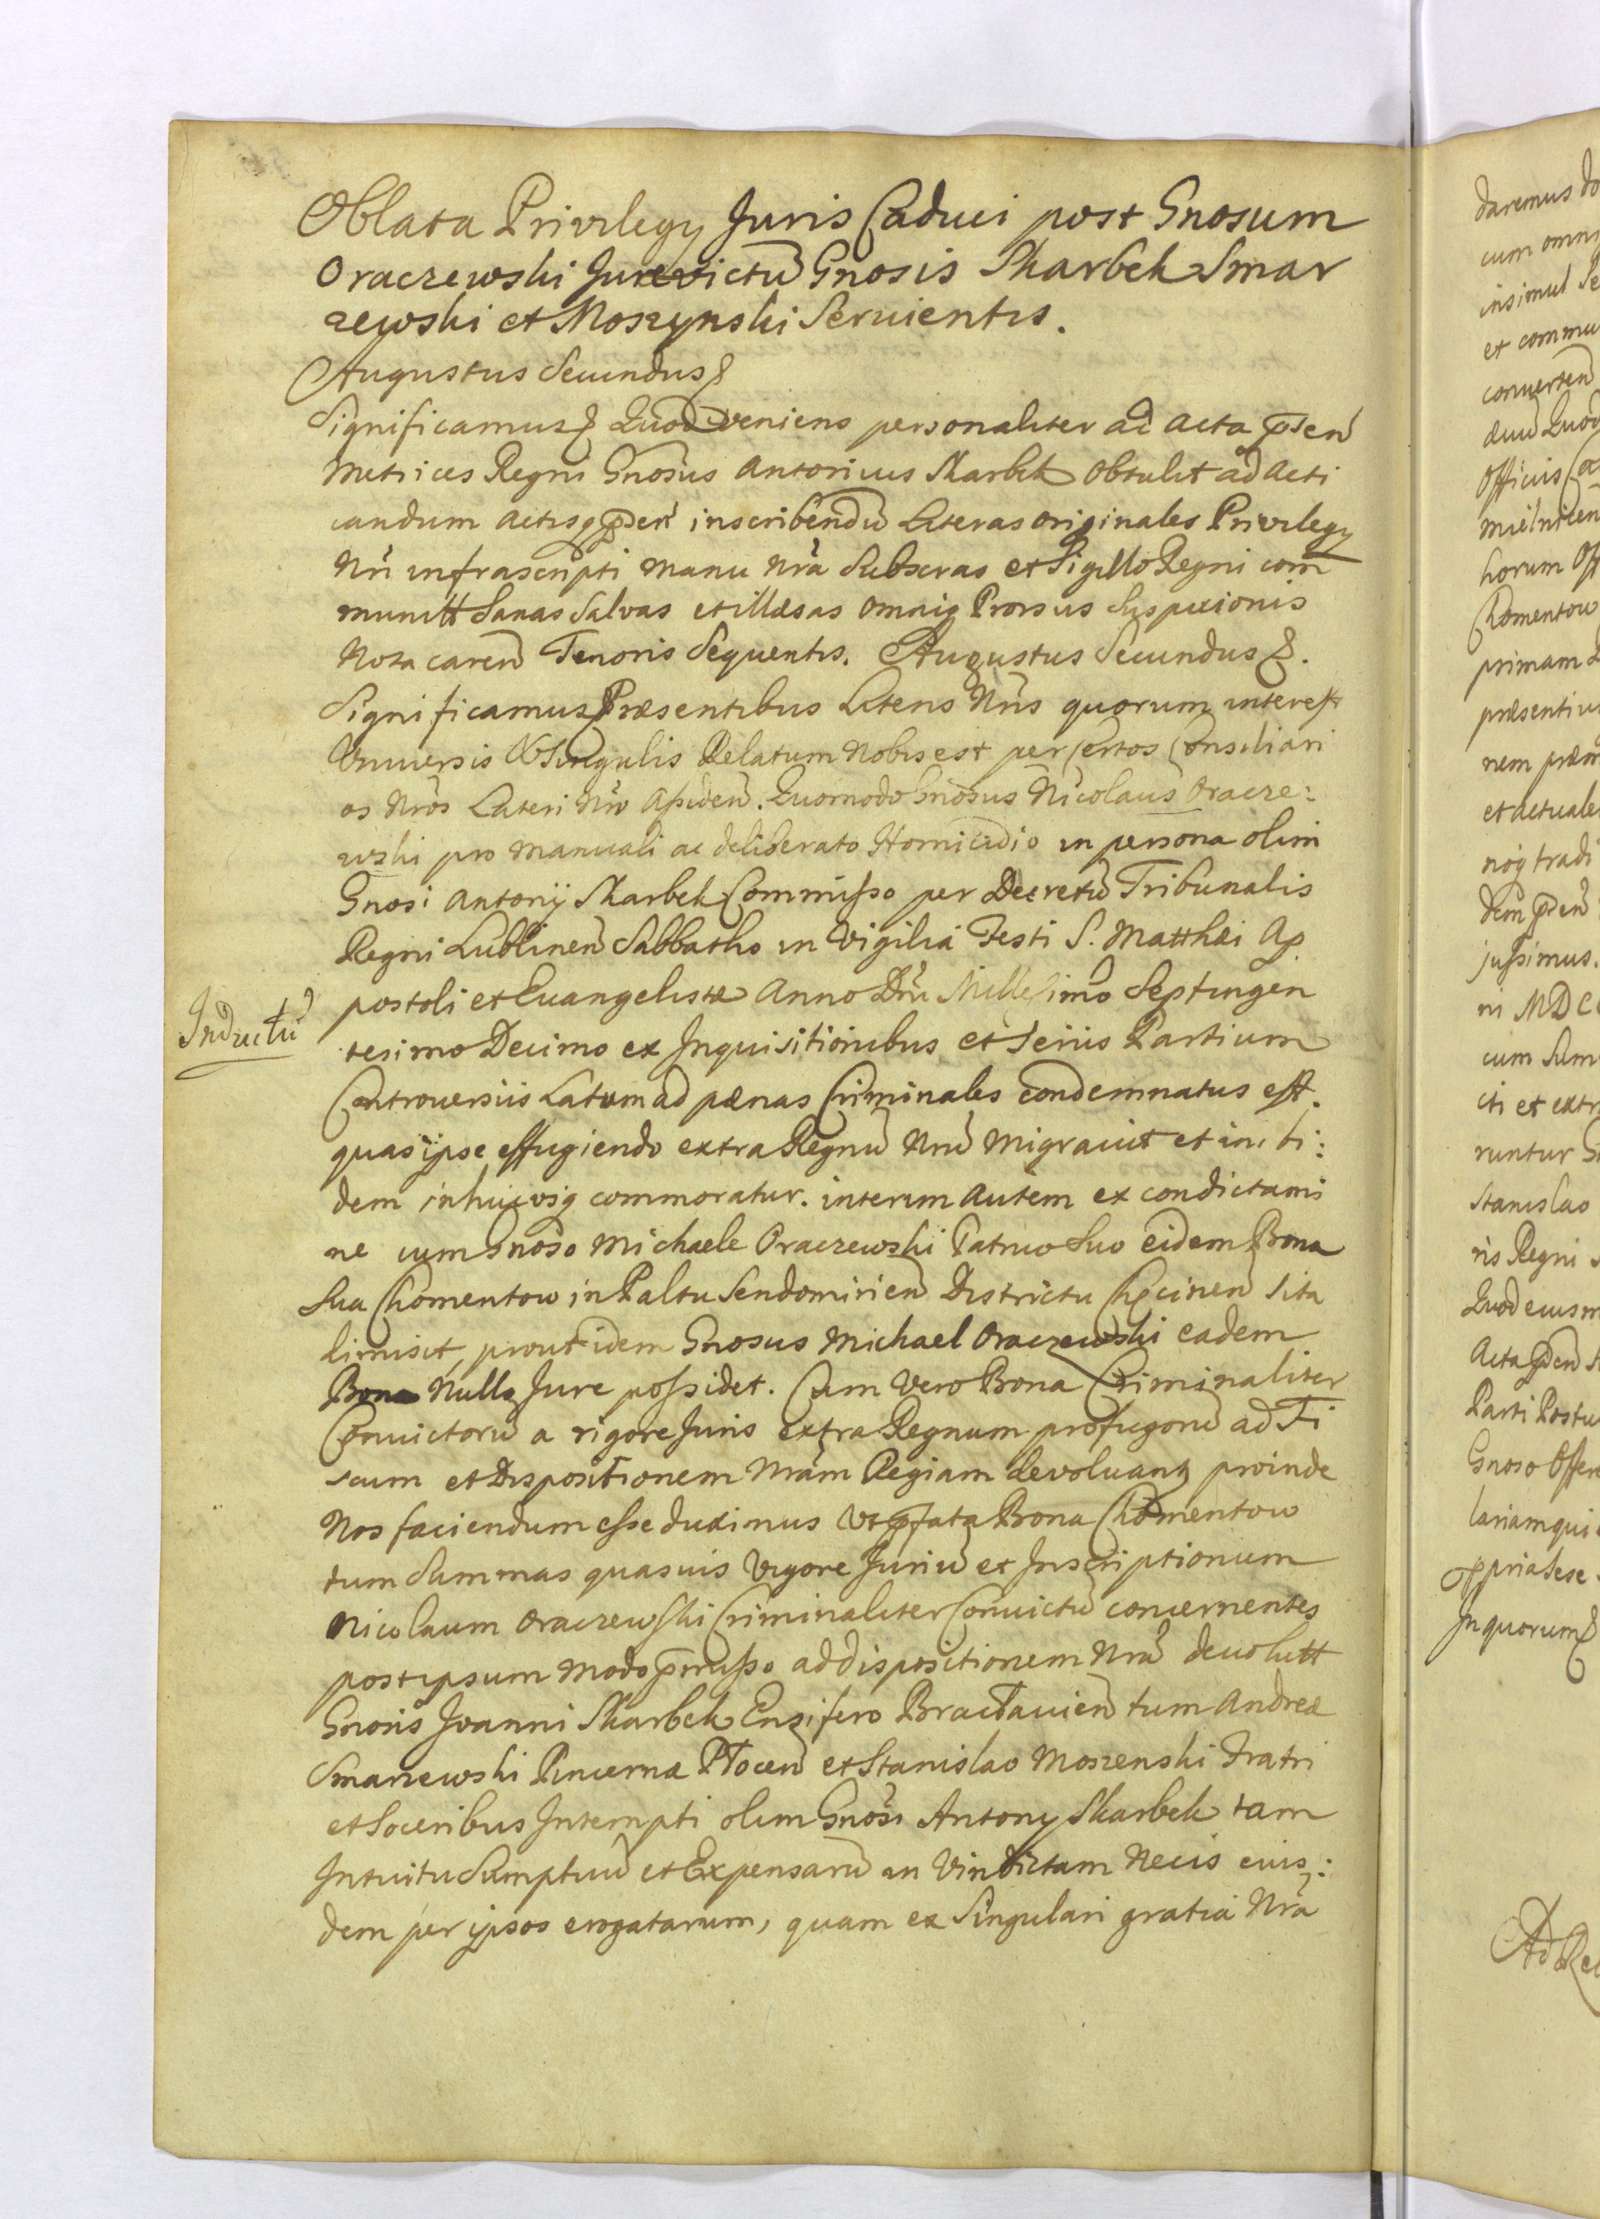 Oblata Privilegy Juris Caduci post Gnosum
Oraczewski Jurevictũ Gnosis Skarbek Smar
zewski et Moszynski Servientis.
Augustus Secundus
Significamus Quod veniens personaliter ad Acta p̃sen̄
Metrices Regni Gnosus Antonius Skarbek obtulit ad Acti
candum Actisq p̃sen̄ inscribendũ Literas originales Privilegy
Nr̃i infrascripti manu Nr̃a Subscras et Sigillo Regni com̃
munitt Sanas Salvas et illæsas omniq Prorsus Suspicionis
Nota caren̄ Tenoris Sequentis. Augustus Secundus.
Significamus Præsentibus Literis Nr̃is quorum interest
Universis & Singulis Relatum Nobis est per certos Consiliari
os Nr̃os Lateri Nr̃o Assiden̄. Quomodo Gnosus Nicolaus Oracze:
wski pro manuali ac deliberato Homicidio in persona olim
Gnosi Antonij Skarbek Commisso per Decretũ Tribunalis
Regni Lublinen̄ Sabbatho in Vigilia Festi S. Matthæi Ap
postoli et Euangelistæ Anno Dñi Millesimo Septingen
Inductũ
tesimo Decimo ex Inquisitionibus et Seriis Partium
Controuersiis Latum ad pænas Criminales condemnatus est.
quas ipse effugiendo extra Regnũ Nr̃ũ Migravit et in, bi:
dem inhucusq commoratur. interim autem ex condictami
ne cum Gnoso Michaele Oraczewski Patruo Suo eidem Bona
Sua Chomentow in Paltu Sendomirien̄ Districtu Chęcinen̄ Sita
dimisit, prout idem Gnosus Michael Oraczewski eadem
Bona Nullo Jure possidet. Cum vero Bona Criminaliter
Convictorũ a rigore Juris extra Regnum profugorũ ad Fi
scum et Dispositionem Nr̃am Regiam devoluant proinde
Nos faciendum esse duximus ut p̃fata Bona Chomentow
tum Summas quasuis Vigore Juriũ et Inscriptionum
Nicolaum Oraczewski Criminaliter Convictũ concernentes
post ipsum modo p̃misso ad dispositionem Nr̃ã devolutt
Gnosis Joanni Skarbek Ensifero Braclavien̄ tum Andreæ
Smarzewski Pincernæ Plocen̄ et Stanislao Moszenski Fratri
et Soceribus Interempti olim Gnosi Antony Skarbek tam
Intuitu Sumptuũ et Expensarũ in Vindictam Necis eius:
dem per ipsos erogatarum, quam ex Singulari gratia Nr̃a